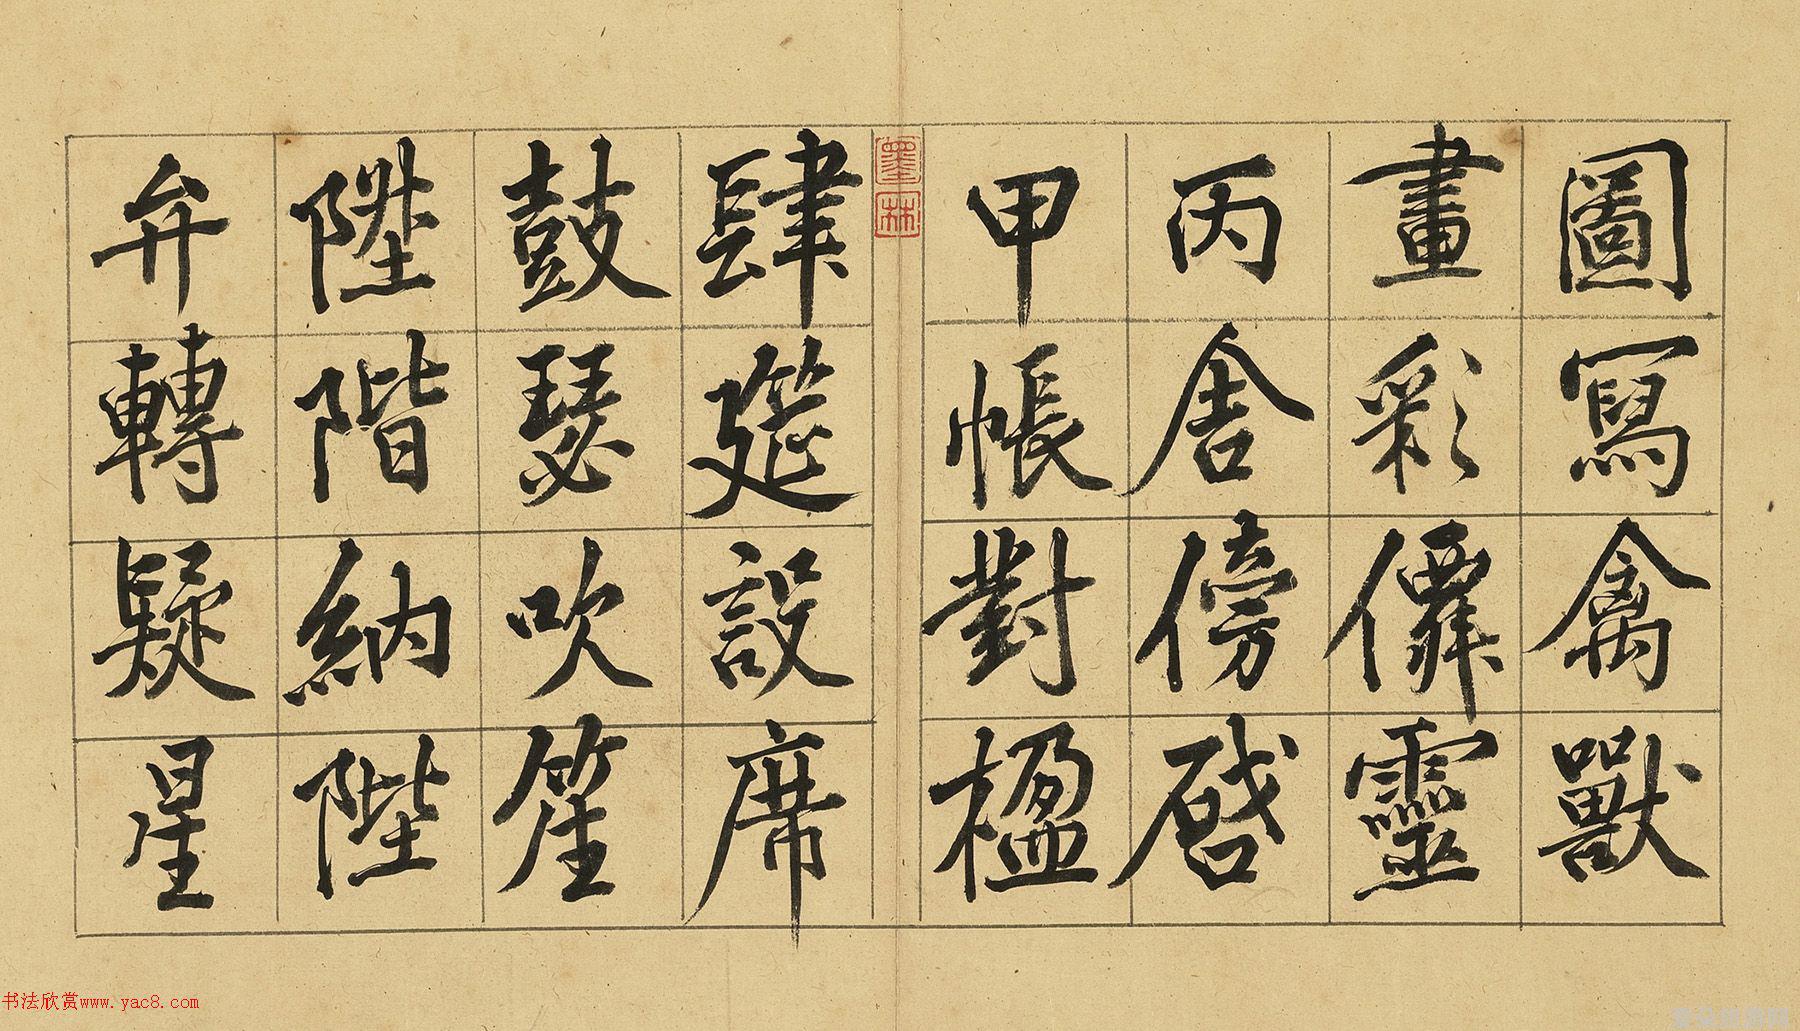 圖寫禽獸
畫彩僊靈
丙舍傍啟
甲帳對楹
肆筵設席
鼓瑟吹笙
陞階納陛
弁轉疑星
墨林
书法欣赏www.yac8.com